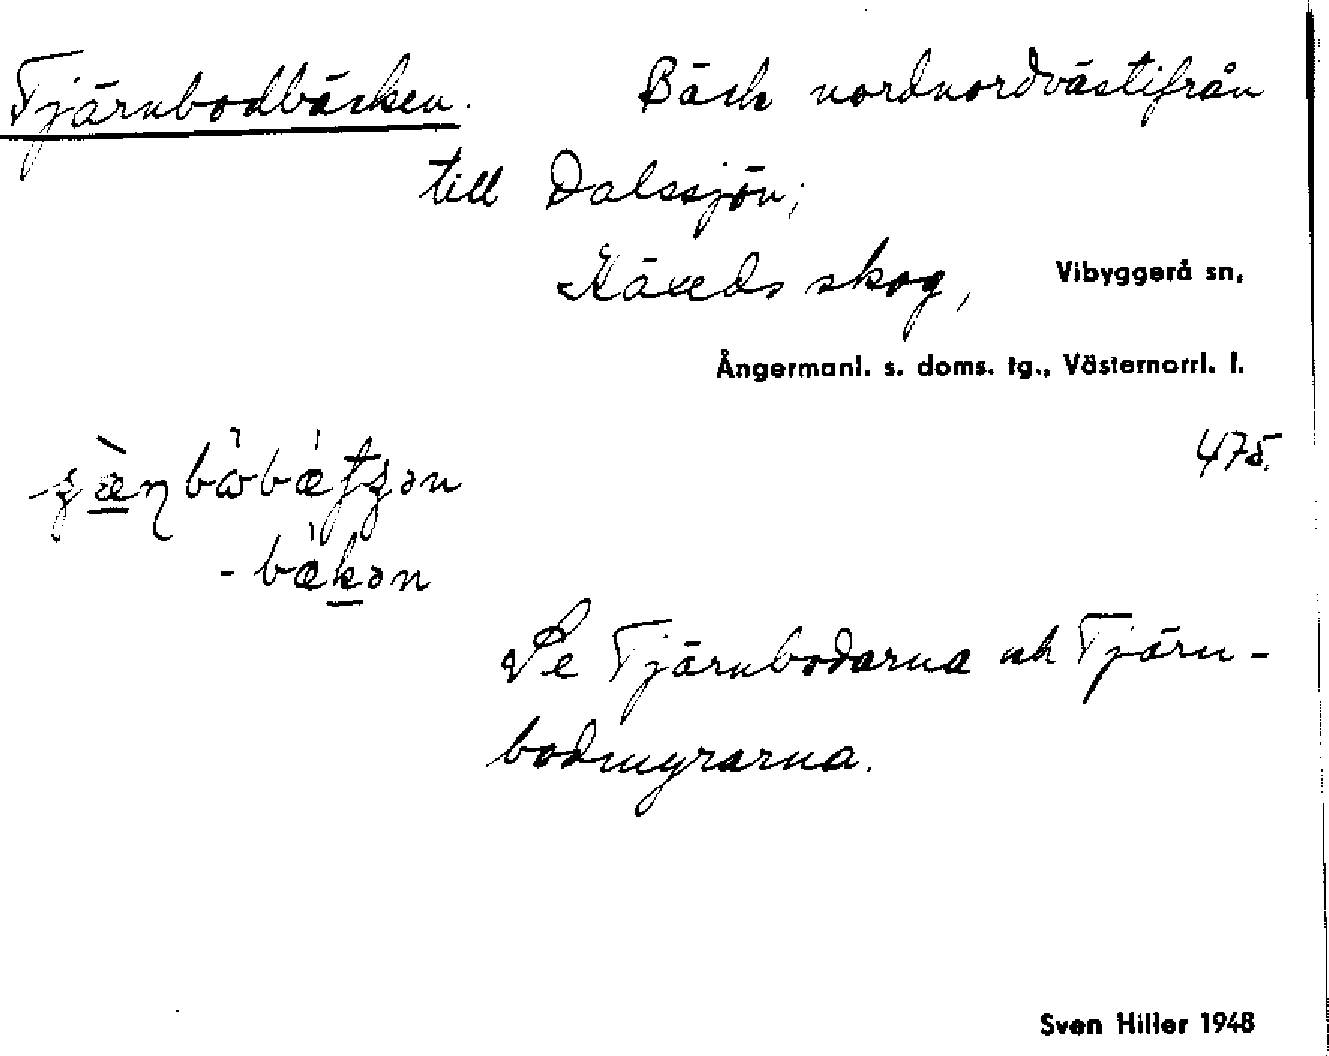 Tjärnbodbäcken. Bäck nordnordvästifrån
till Dalssjön;
skog, Vibyggerå sn,
Ångermanl. s. doms. tg., Västernorrl. l.
475.
Se Tjärnbodarna och Tjärn-
bodmyrarna.
Sven Hiller 1948